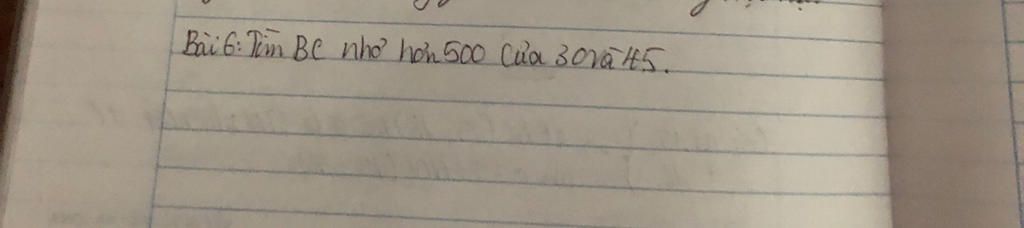 Bài 6: Tìm BC nhỏ hơn 500 của 30 và 45.